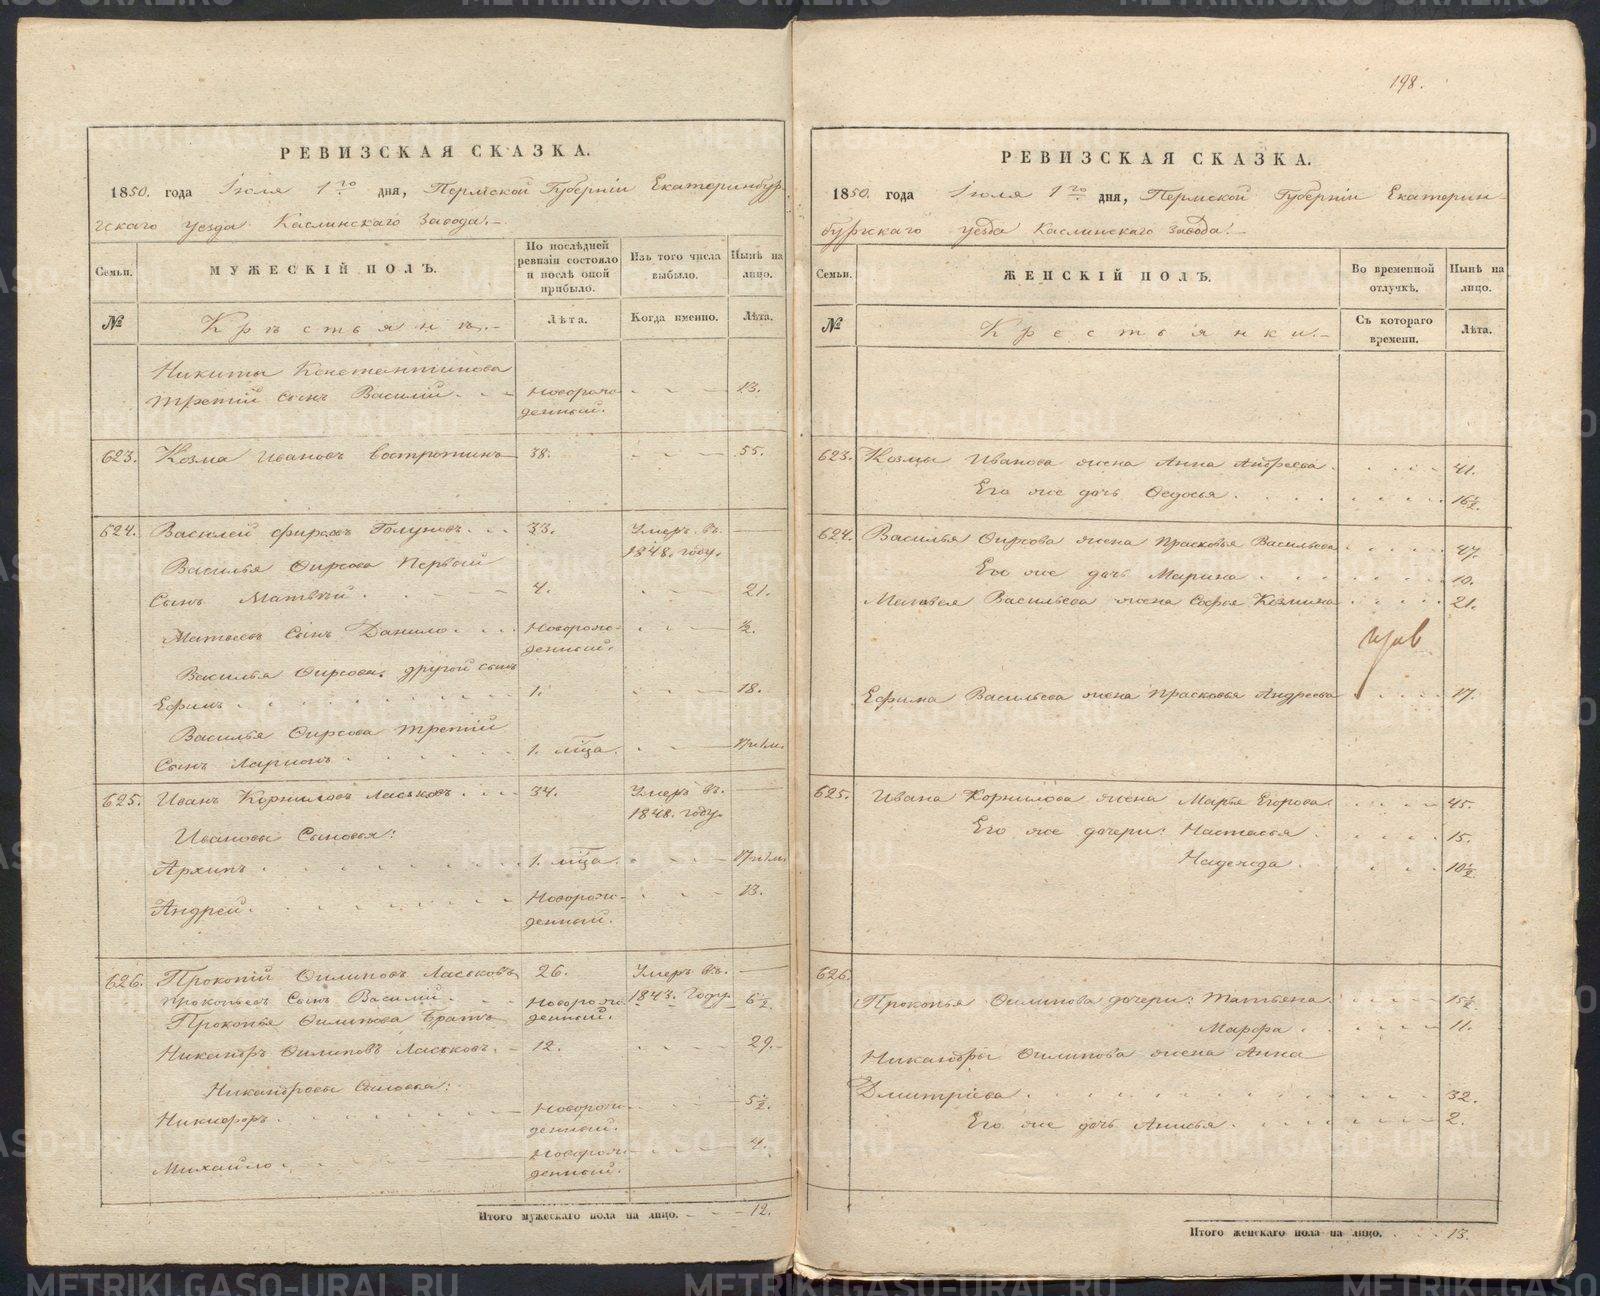 РЕВИЗСКАЯ СКАЗКА.
1850. года Іюля 1го дня, Пермской Губерніи Екатеринбур-
гскаго уезда Каслинскаго Завода.
Семьи.
МУЖЕСКІЙ ПОЛЪ.
По послѣдней ревизіи состояло и послѣ оной прибыло.
Изъ того числа выбыло.
Нынѣ на лицо.
№
Крестьянъ.
Лѣта.
Когда именно.
Лѣта.
Никиты Констентинова
третій сынъ Василій. Новорож- 13.
денный.
623. Козма Ивановъ Востротинъ 38. 55.
624. Василей Фирсовъ Голуновъ. 33. Умеръ въ
1848. году.
Василья Фирсова Первый
сынъ Матвѣй. 4. 21.
Матвеевъ сынъ Данило. Новорож- ½.
денный.
Василья Фирсова другой сынъ
Ефимъ 1. 18.
Василья Фирсова третій
сынъ Ларионъ. 1. мца. 17 и 1 м.
625. Иванъ Корниловъ Ласьковъ. 34. Умеръ въ.
1848. году.
Ивановы Сыновья:
Архипъ 1. мца. 17 и 1 м.
Андрей. Новорож- 13.
денный.
626. Прокопій Филиповъ Ласьковъ 26. Умеръ въ.
1843. году
Прокопьевъ Сынъ Василій. Новорож- 6½
денный.
Прокопья Филипова Братъ
Никандръ Филиповъ Ласьковъ. 12. 29.
Никандровы Сыновья:
Никифоръ. Новорож- 5½.
денный.
Михайло. Новорож- 4.
денный.
Итого мужескаго пола на лицо. 12.
198.
РЕВИЗСКАЯ СКАЗКА.
1850. года Іюля 1го дня, Пермской Губерніи Екатерин-
бургскаго уезда Каслинскаго завода.
Семьи.
ЖЕНСКІЙ ПОЛЪ.
Во временной отлучкѣ.
Нынѣ на лицо.
№
Крестьянки.
Съ котораго времени.
Лѣта.
623. Козмы Иванова жена Анна Андреева. 41.
Его же дочь Федосья. 16½.
624. Василья Фирсова жена Прасковья Васильева 47.
Его же дочь Марина 10.
Матвея Васильева жена Софья Козмина 21.
Ефима Васильева жена Прасковья Андреева 17.
625. Ивана Корнилова жена Марья Егорова. 45.
Его же дочери: Настасья 15.
Надежда. 10½
626.
Прокопья Филипова дочери: Татьяна 15½
Марфа. 11.
Никандры Филипова жена Анна
Дмитріева. 32.
Его же дочь Анисья. 2.
Итого женскаго пола на лицо. 13.
METRIKI.GASO-URAL.RU